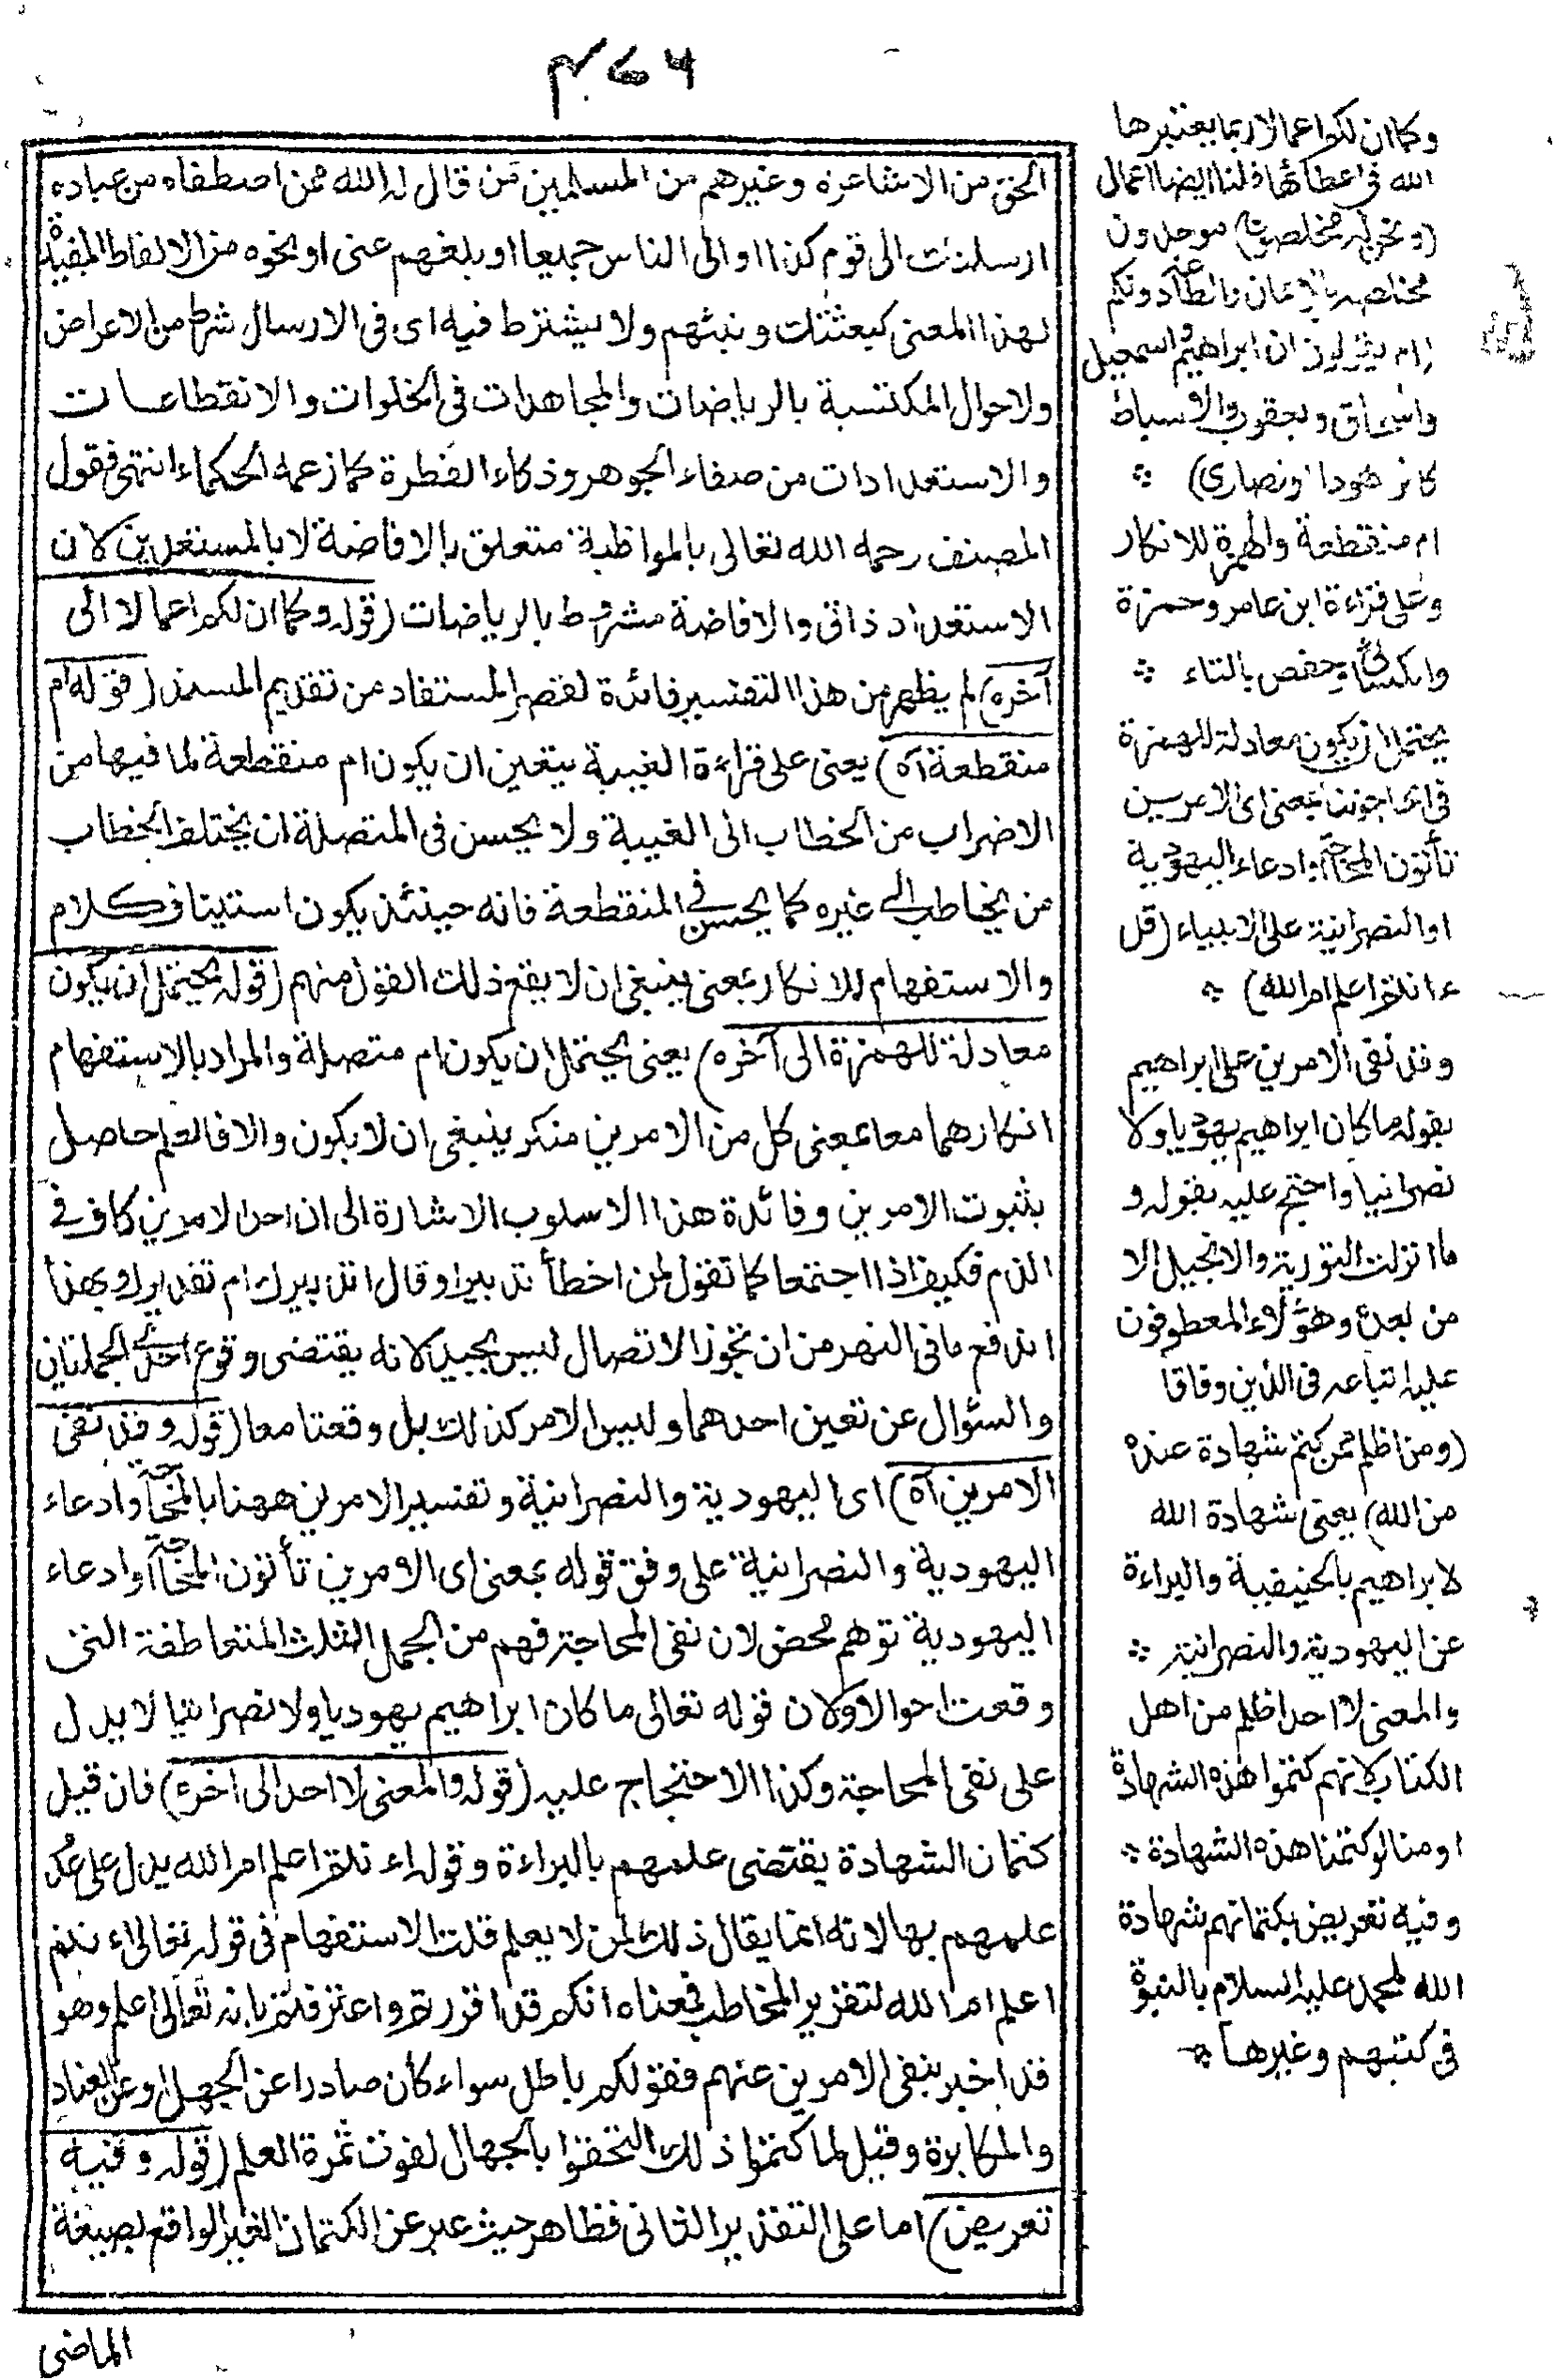 ٤٧٦
الحق من الاشاعرة وغيرهم من المسلمين من قال له الله ممن اصطفاه من عباده
ارسلتك الى قوم كذا او الى الناس جميعا او بلغهم عنى او نحوه من الالفاظ المفيدة
لهذا المعنى كبعثتك ونبئهم ولا يشترط فيه اى فى الارسال شرط من الاعراض
ولاحوال المكتسبة بالرياضات والمجاهدات فى الخلوات والانقطاعات
والاستعدادات من صفاء الجوهر وذكاء الفطرة كما زعمه الحكماء انتهى فقول
المصنف رحمه الله تعالى بالمواظبة متعلق بالافاضة لا بالمستعدين لان
الاستعداد ذاتى والافاضة مشروط بالرياضات (قوله وكما ان لكم اعمالا الى
آخره) لم يظهر من هذا التفسير فائدة لقصر المستفاد من تقديم المسند (قوله ام
منقطعة آه) يعنى على قراءة الغيبة يتعين ان يكون ام منقطعة لما فيها من
الاضراب من الخطاب الى الغيبة ولا يحسن فى المتصلة ان يختلف الخطاب
من يخاطب الى غيره كما يحسن فى المنقطعة فانه حينئذ يكون استيناف كلام
والاستفهام للانكار بمعنى ينبغى ان لا يقع ذلك القول منهم (قوله يحتمل ان يكون
معادلة للهمزة الى آخره) يعنى يحتمل ان يكون ام متصلة والمراد بالاستفهام
انكارهما معا بمعنى كل من الامرين منكر ينبغى ان لا يكون والا فالعلم حاصل
بثبوت الامرين وفائدة هذا الاسلوب الاشارة الى ان احد الامرين كاف فى
الذم فكيف اذا اجتمعا كما تقول لمن اخطأ تدبيرا وقال اتدبيرك ام تقديرك وبهذا
اندفع ما فى النهر من ان تجوز الاتصال ليس بجيد لانه يقتضى وقوع احدى الجملتين
والسئوال عن تعين احدهما وليس الامر كذلك بل وقعتا معا (قوله وقد نفى
الامرين آه) اى اليهودية والنصرانية وتفسير الامرين ههنا بالمحاجة وادعاء
اليهودية والنصرانية على وفق قوله بمعنى اى الامرين تأتون المحاجة او ادعاء
اليهودية توهم محض لان نفى المحاجة فهم من الجمل الثلث المتعاطفة التى
وقعت احوالا ولان قوله تعالى ما كان ابراهيم يهوديا ولا نصرانيا لا يدل
على نفى المحاجة وكذا الاحتجاج عليه (قوله والمعنى لا احد الى اخره) فان قيل
كتمان الشهادة يقتضى علمهم بالبراءة وقوله ءانتم اعلم ام الله يدل على عدم
علمهم بها لانه انما يقال ذلك لمن لا يعلم قلت الاستفهام فى قوله تعالى ءانتم
اعلم ام الله لتقرير المخاطب فمعناه انكم قد اقررتم واعترفتم بانه تعالى اعلم وهو
قد اخبر بنفى الامرين عنهم فقولكم باطل سواء كان صادرا عن الجهل او عن العناد
والمكابرة وقيل لما كتموا ذلك التحقوا بالجهال لفوت ثمرة العلم (قوله وفيه
تعريض) اما على التقدير الثانى فظاهر حيث عبر عن الكتمان الغير الواقع بصيغة
الماضى
وكما ان لكم اعمالا ربما يعتبرها
الله فى اعطائها فلنا ايضا اعمال
(ونحن له مخلصون) موحدون
مخلصه بالايمان والطاعة دونكم
(ام يقولون ان ابراهيم واسمعيل
واسحاق ويعقوب والاسباط
كانوا هودا او نصارى) ❖
ام منقطعة والهمزة للانكار
وعلى قراءة ابن عامر وحمزة
والكسائى وحفص بالتاء ❖
يحتمل ان يكون معادلة للهمزة
فى اتحاجوننا بمعنى اى الامرين
تأتون المحاجة او ادعاء اليهودية
او النصرانية على الانبياء (قل
ءانتم اعلم ام الله) ❖
وقد نفى الامرين على ابراهيم
بقوله ما كان ابراهيم يهوديا ولا
نصرانيا واحتج عليه بقوله و
ما انزلت التورية والانجيل الا
من بعده وهؤلاء المعطوفون
عليه اتباعه فى الدين وفاقا
(ومن اظلم ممن كتم شهادة عنده
من الله) يعنى شهادة الله
لابراهيم بالحنيفية والبراءة
عن اليهودية والنصرانية ❖
والمعنى لا احد اظلم من اهل
الكتاب لانهم كتموا هذه الشهادة
او منا لو كتمنا هذه الشهادة ❖
وفيه تعريض بكتمانهم شهادة
الله لمحمد عليه السلام بالنبوة
فى كتبهم وغيرها ❖